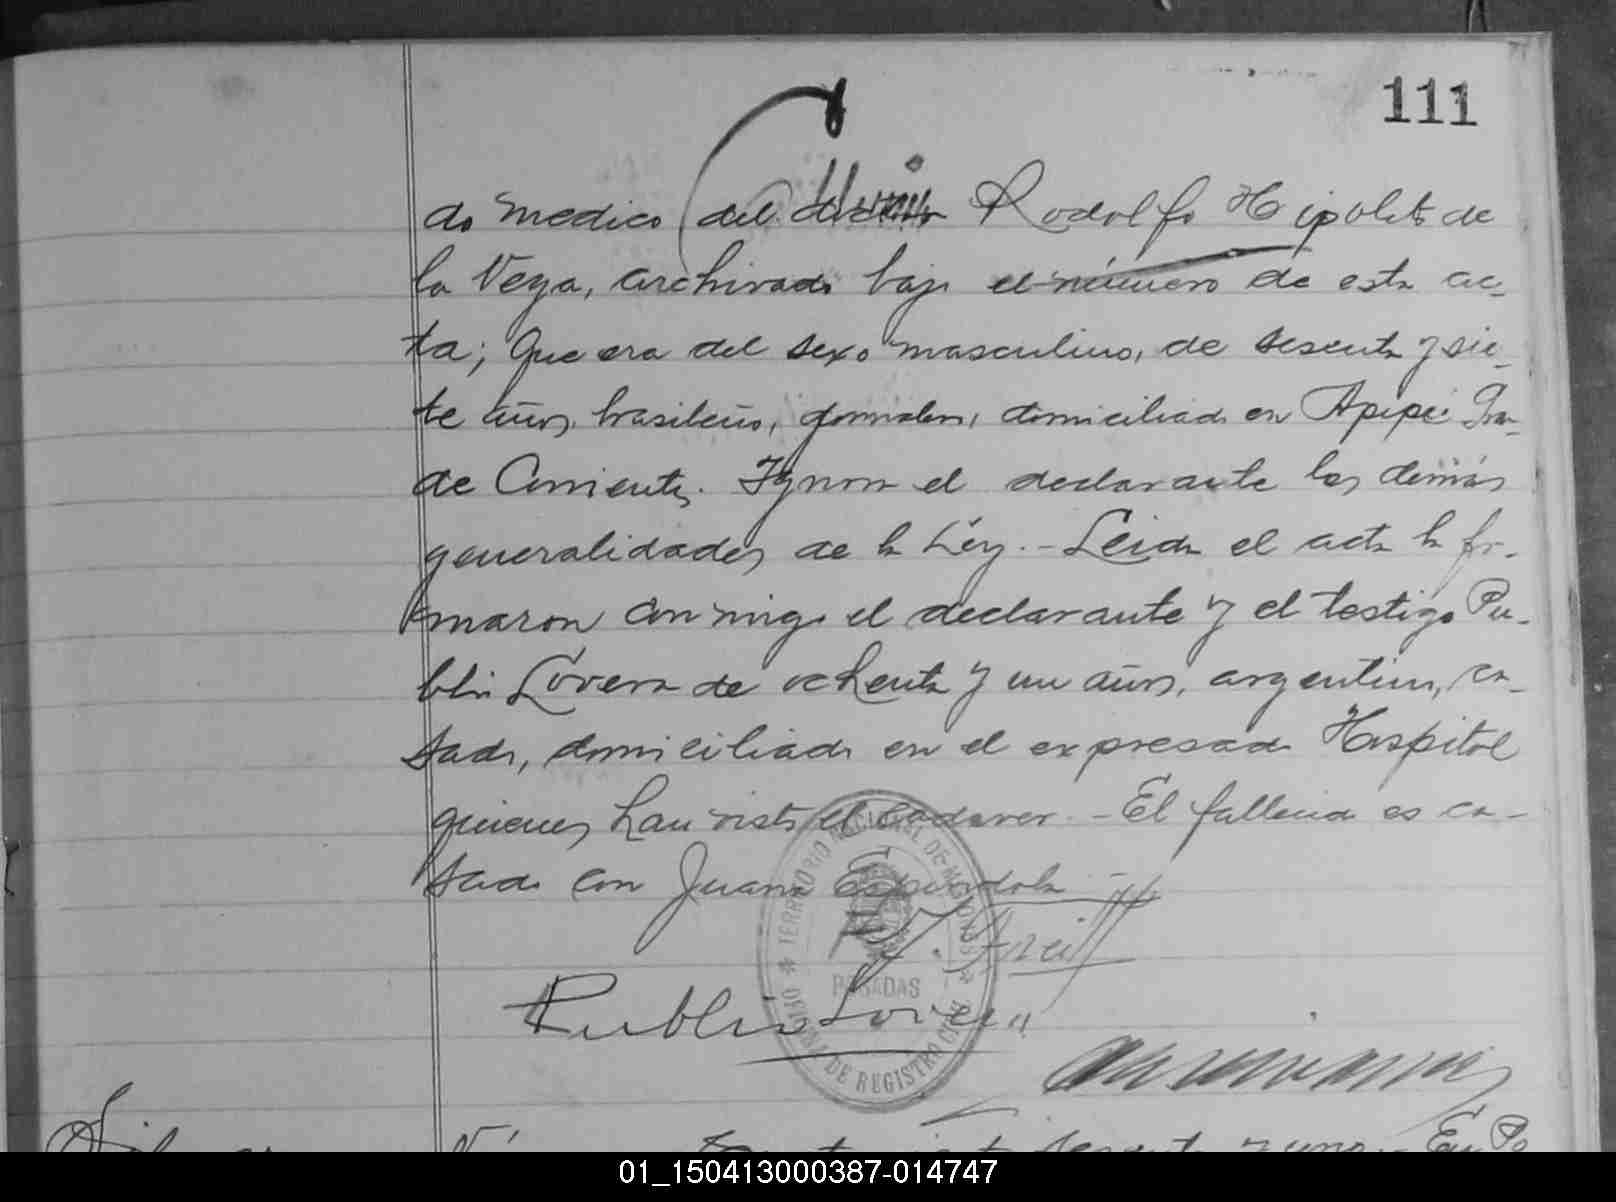 111
do medico del Rodolfo Hipolito de
la Vega, archivado bajo el número de esta ac-
ta; Que era del sexo masculino, de sesenta y sie-
te años, brasileño, jornalero, domiciliado en Apipé Gran-
de Corrientes. Ignora el declarante las demás
generalidades de la Ley.- Leida el acta la fir-
maron conmigo el declarante y el testigo Pu-
blio Lovera de ochenta y un años, argentino, ca-
sado, domiciliado en el expresado Hospital
quienes han visto el cadaver.- El fallecido es ca-
sado con Juana Espindola.-
Publio Lovera
TERRITORIO NACIONAL DE MISIONES
POSADAS
OFICINA DE REGISTRO CIVIL
01_150413000387-014747